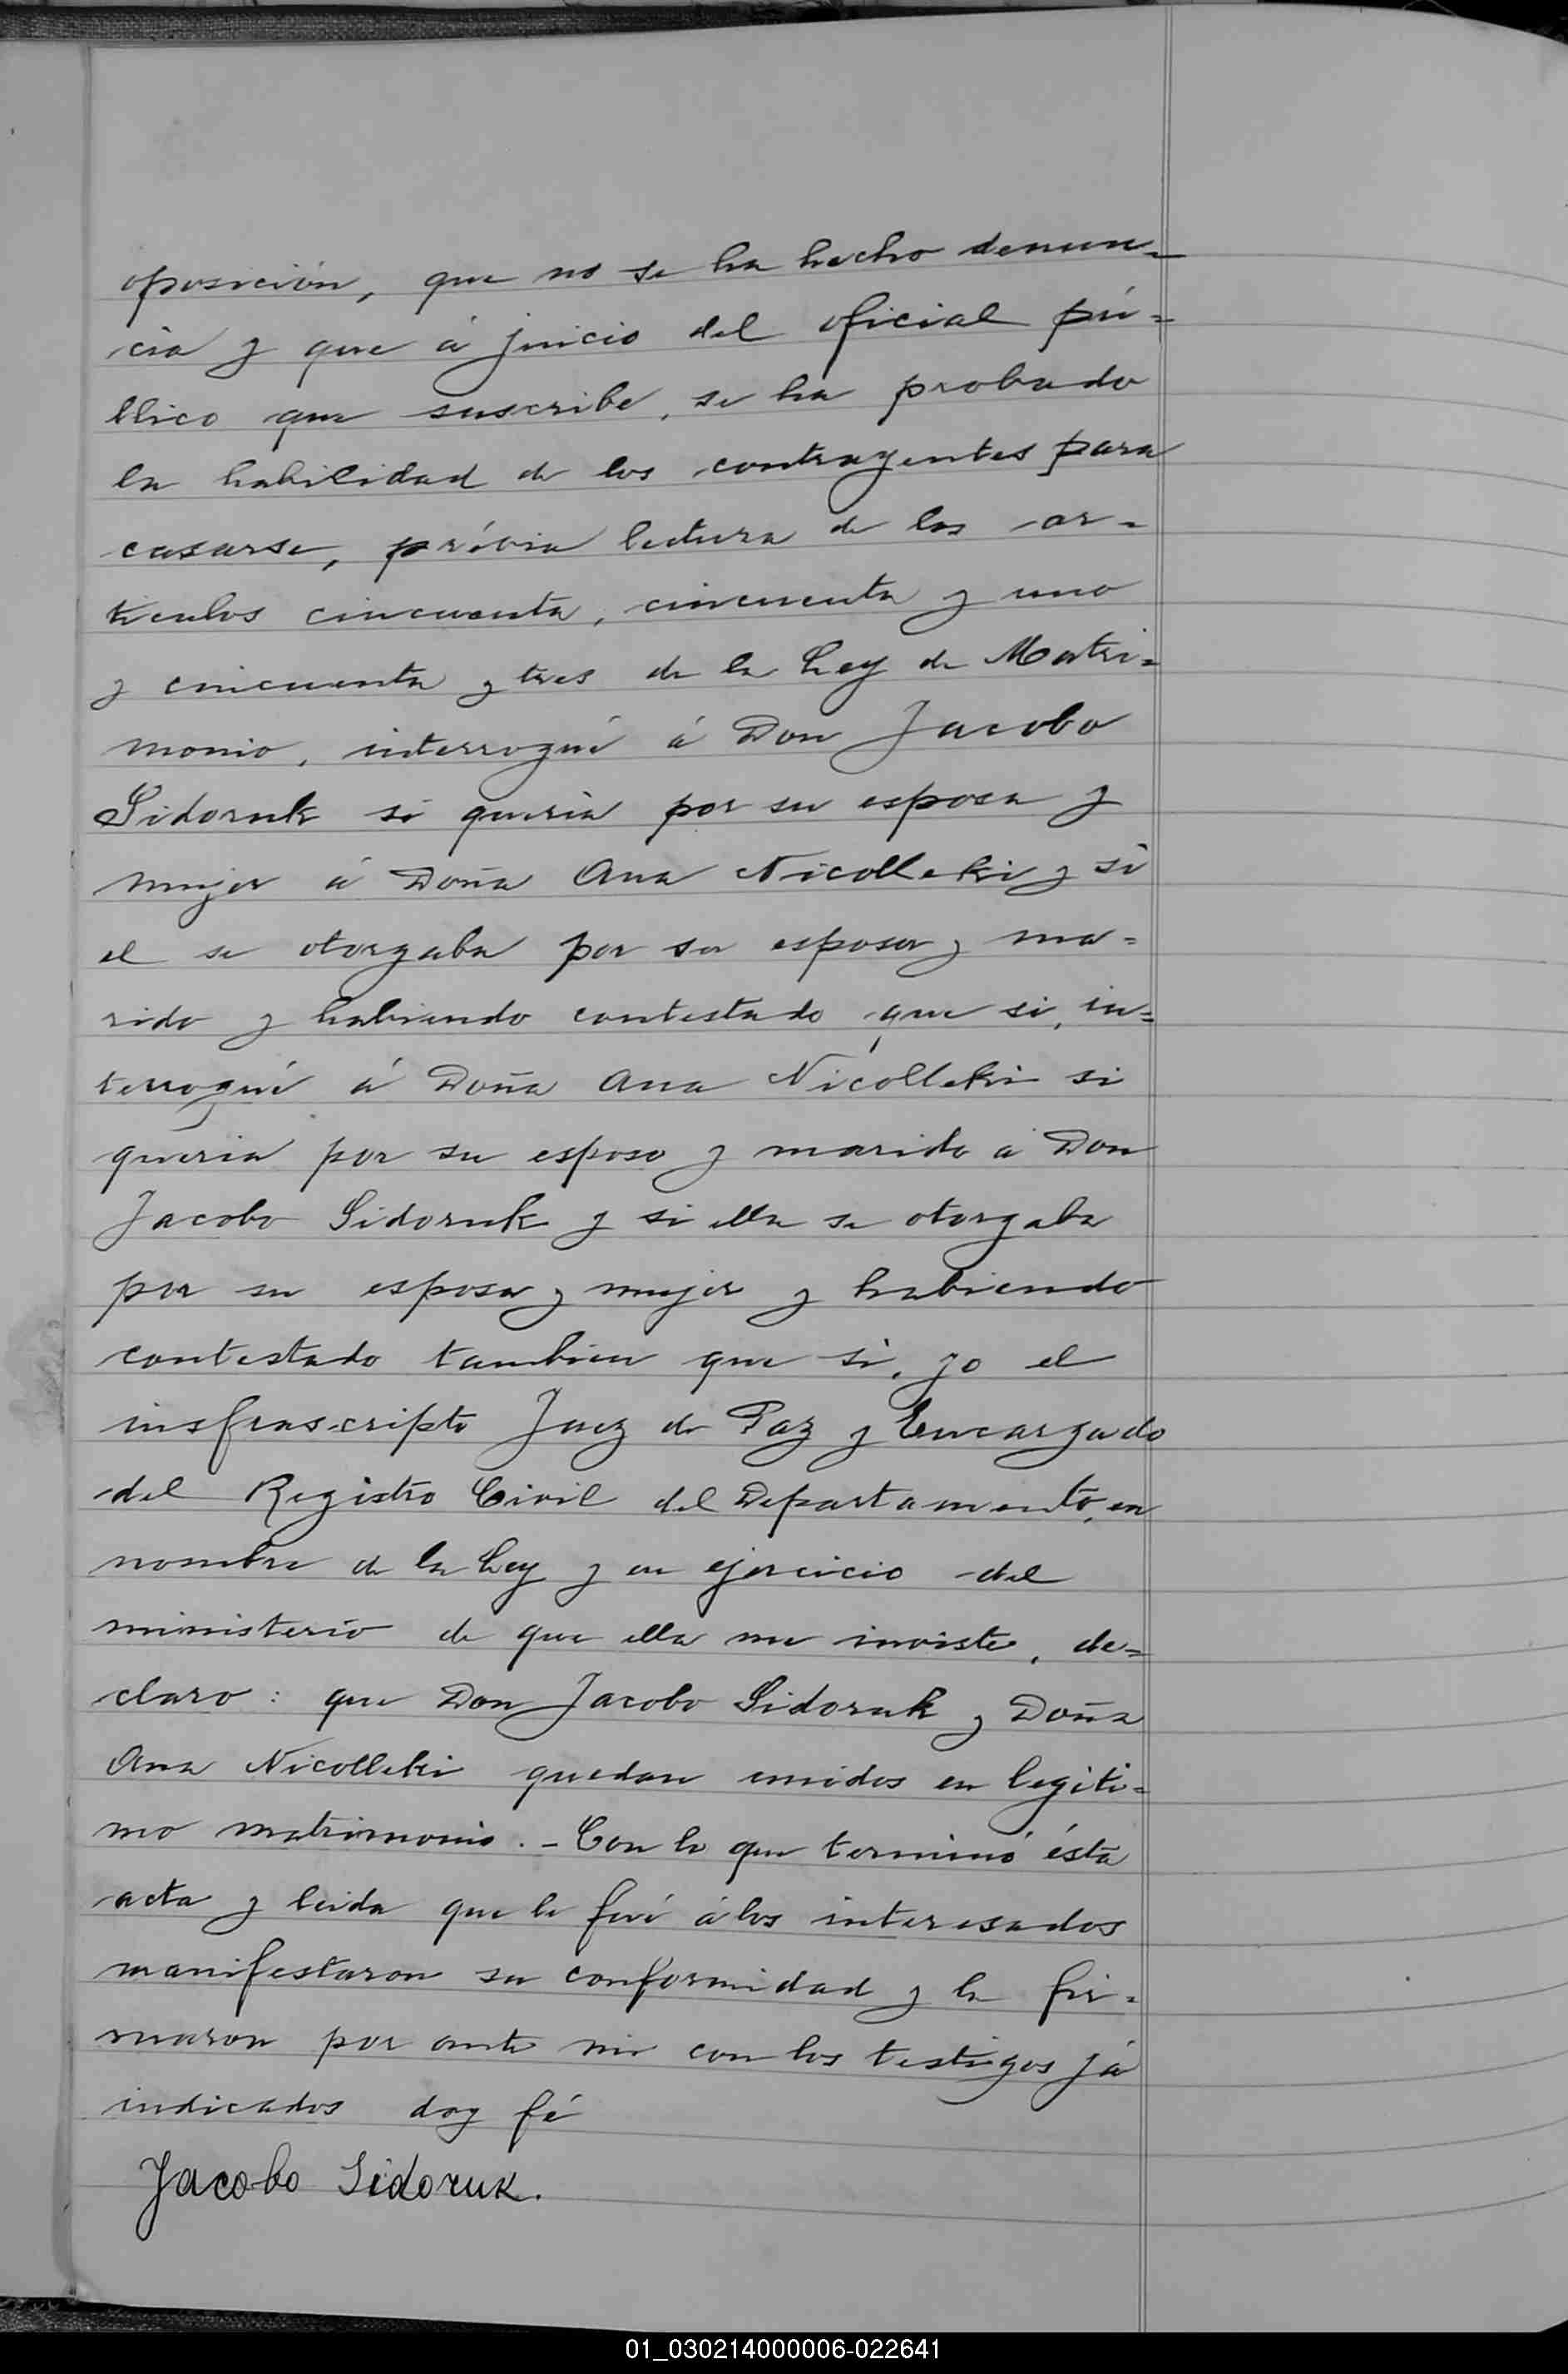 oposición, que no se ha hecho denun-
cia y que á juicio del oficial pú=
blico que suscribe, se ha probado
la habilidad de los contrayentes para
casarse, prévia lectura de los ar-
tículos cincuenta, cincuenta y uno
y cincuenta y tres de la Ley de Matri=
monio, interrogué á Don Jacobo
Sidoruk si queria por su esposa y
mujer á Doña Ana Nicolleki y si
el se otorgaba por su esposo y ma=
rido y habiendo contestado que si, in=
terrogué á Doña Ana Nicolleki si
queria por su esposo y marido á Don
Jacobo Sidoruk y si ella se otorgaba
por su esposa y mujer y habiendo
contestado tambien que si, yo el
insfrascripto Juez de Paz y Encargado
del Registro Civil del Departamento, en
nombre de la Ley y en ejercicio del
ministerio de que ella me inviste, de=
claro: que Don Jacobo Sidoruk y Doña
Ana Nicolleki quedan unidos en legiti=
mo matrimonio. - Con lo que terminó ésta
acta y leida que le fué á los interesados
manifestaron su conformidad y la fir=
maron por ante mi con los testigos já
indicados doy fé
Jacobo Sidoruk.
01_030214000006-022641